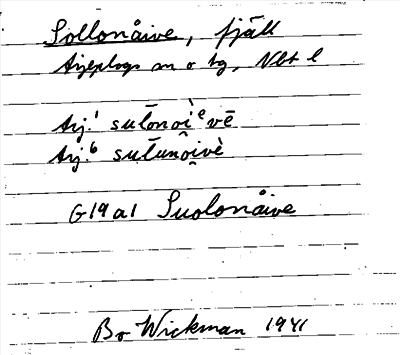 Sollonåive, fjäll
Arjeplogs sn o tg, Vbt l
Arj.¹ sulonoi̯ᵉvē
Arj.⁶ sulunoi̯vè
G19a1 Suolonåive
Bo Wickman 1941